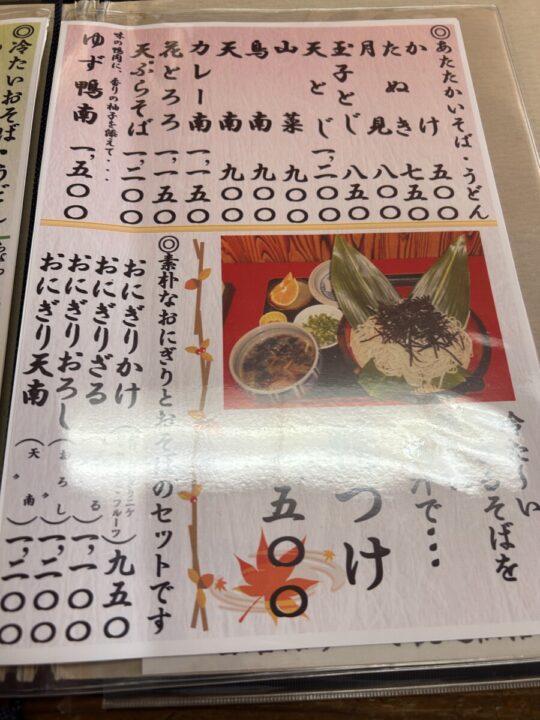 ◎あたたかいそば・うどん
かけ 五〇〇
たぬき 七五〇
月見 八〇〇
玉子とじ 八五〇
天とじ 一,二〇〇
山菜 九〇〇
鳥南 九〇〇
天南 九〇〇
カレー南 一,一五〇
花とろろ 一,一五〇
天ぷらそば 一,二〇〇
味の鴨肉に、香りの柚子を添えて・・・
ゆず鴨南 一,五〇〇
冷たい
そばを
で・・
つけ
五〇〇
◎素朴なおにぎりとおそばのセットです
おにぎりかけ フルーツ) 九五〇
おにぎりざる ( る) 一,一〇〇
おにぎりおろし (おろし) 一,二〇〇
おにぎり天南 (天南) 一,二〇〇
◎冷たいおそば・うどん